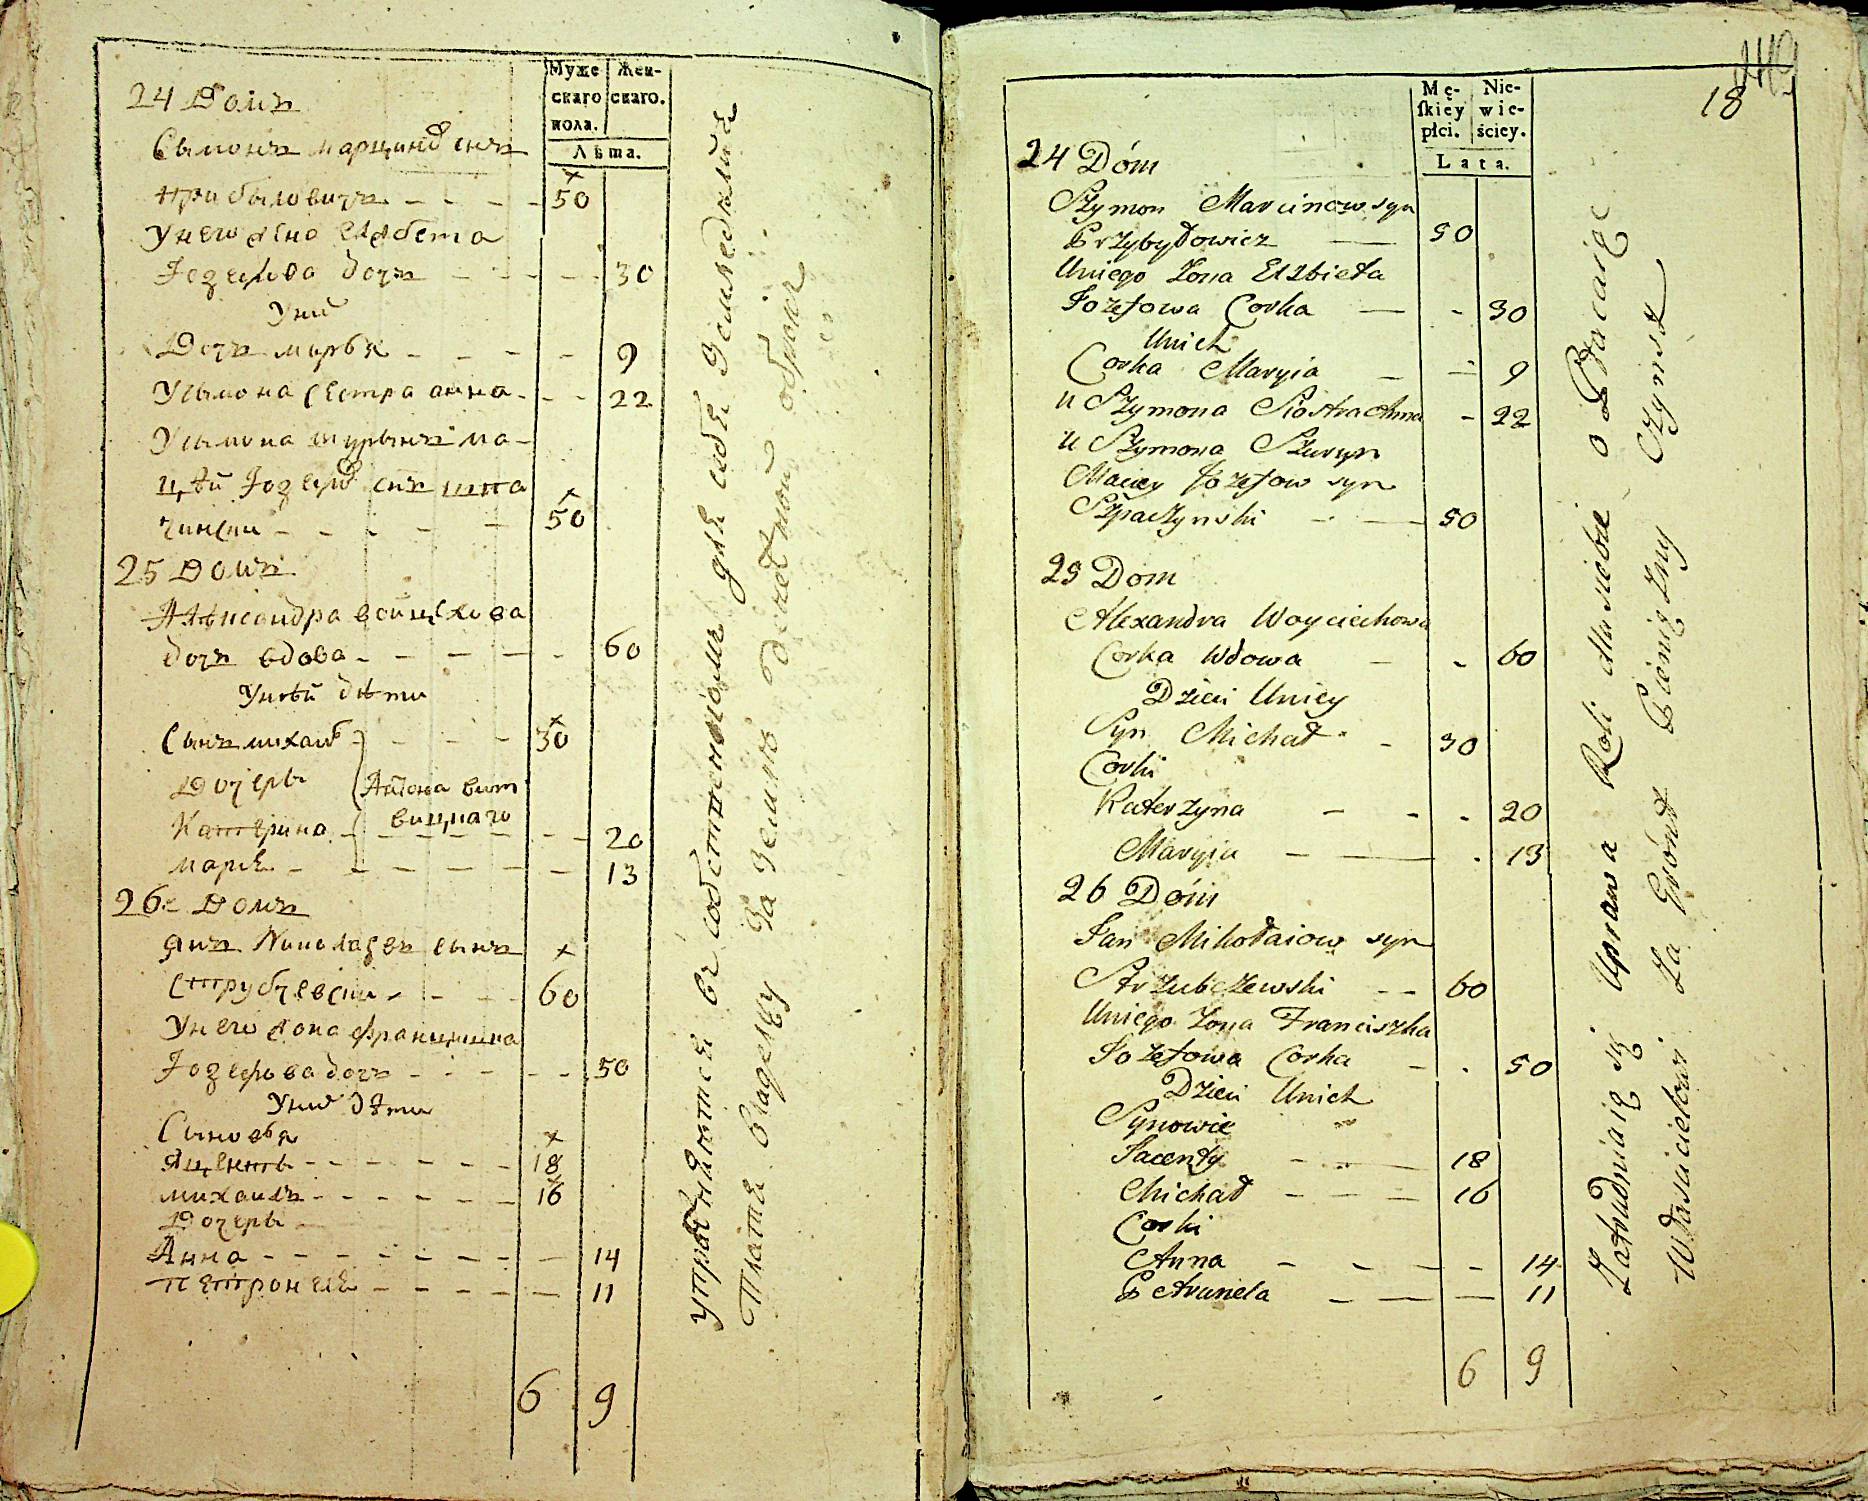 Муже
скаго
пола.
Жен-
скаго.
Лѣта.
24 Домъ
Сымонъ марцинов снъ
прибыловичъ - - - - 50
Унего жена Елжбета
Іозефова дочъ - - - - 30
Уних
Дочъ марья - - - - 9
Усымона сестра анна - - - 22
Усымона шурынъ ма-
цѣй Іозефов снъ шпа
чински - - - - 50
25 Домъ
Алѣксандра войцехова
дочъ вдова - - - - - 60
Унѣй дѣти
Сынъ михаил - - - - 30
Дочеры
Катерина - - - - - 20
мария - - - - - - 13
26 Домъ
янъ Николаевъ сынъ
Струбчевски - - - - 60
Унего жона Францишка
Іозефова дочъ - - - - - 50
Уних дѣти
Сыновья
Яцентъ - - - - - - 18
михаилъ - - - - - - 16
Дочеры
Анна - - - - - - - - 14
петронеля - - - - - - 11
6 9
упражняются въ собственномъ для себя земледелии
Платя владельцу За Землю денежной оброкъ
18
Mę-
skiey
płci.
Nie-
wie-
ściey.
Lata.
24 Dóm
Szymon Marcinow syn
Przybyłowicz — 50
Uniego Zona Elzbieta
Jozefowa Corka — - 30
Unich
Corka Maryia - - 9
u Szymona Siostra Anna - 22
u Szymona Szuryn
Maciey Jozefow syn
Szpaczynski - — 50
25 Dom
Alexandra Woyciechowa
Corka Wdowa - - 60
Dzieci Uniey
Syn Michał - - 30
Corki
Katerzyna - - - 20
Maryia - — - 13
26 Dóm
Jan Mikołaiow syn
Strzubczewski - - 60
Uniego Zona Franciszka
Jozefowa Corka - - 50
Dzieci Unich
Synowie
Jacenty - - — 18
Michał - - - 16
Corki
Anna - - - - - 14
Petrunela - - — — 11
6 9
Zatrudniaią się Uprawa Roli dla siebie o Płacaiąc
Własicielowi Za Gront Pieniężny Czynsz